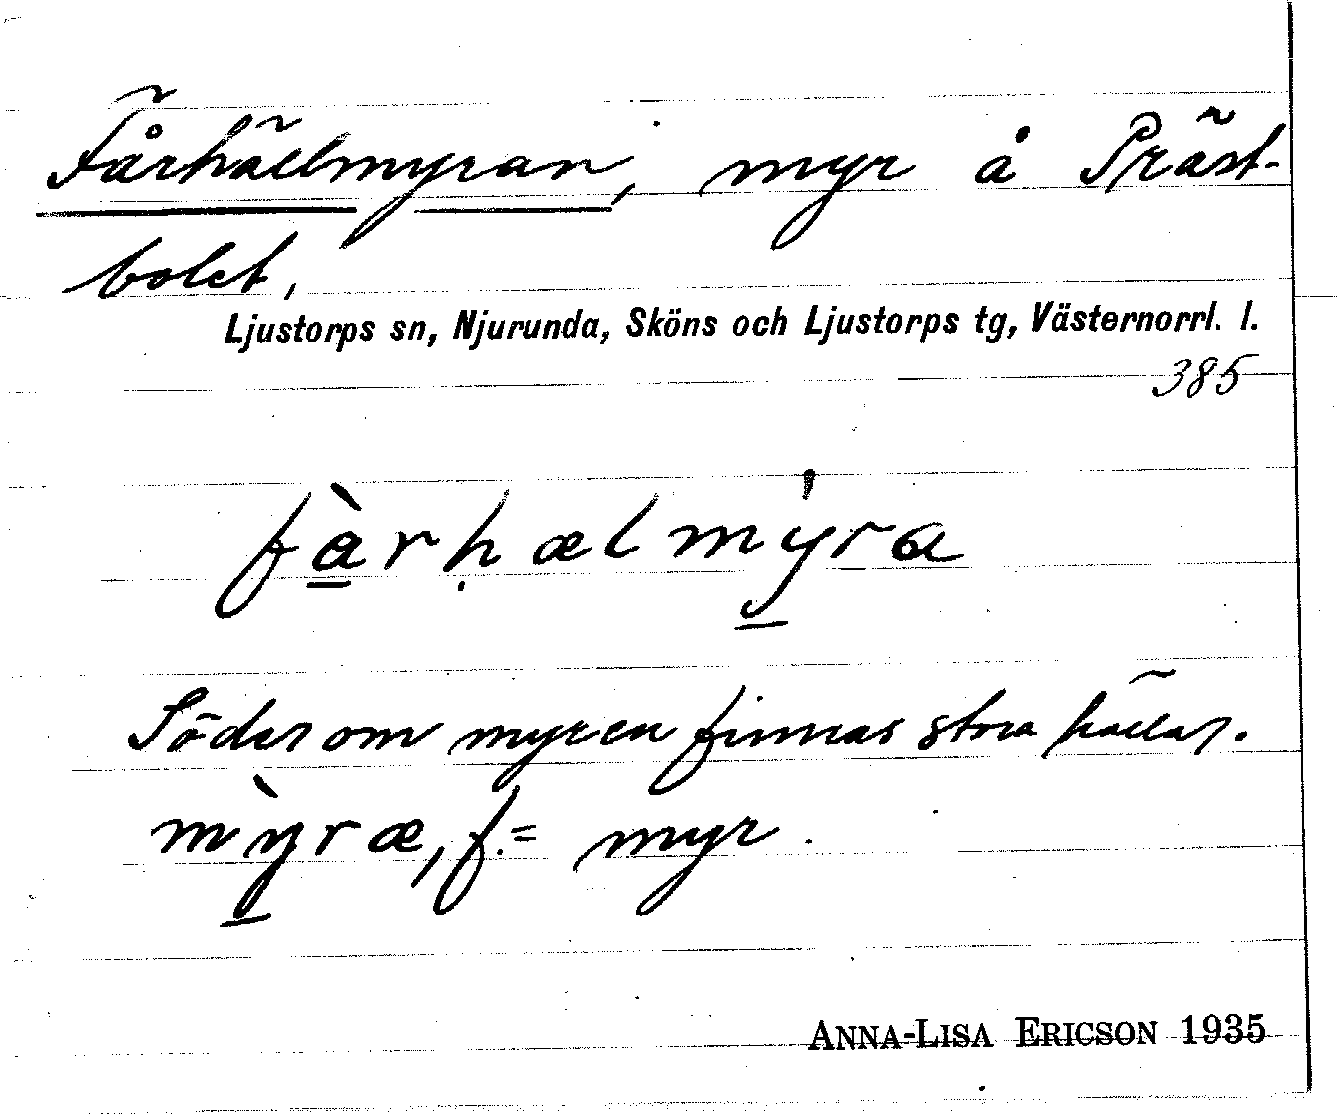 Fårhällmyran, myr å Präst-
bolet,
Ljustorps sn, Njurunda, Sköns och Ljustorps tg, Västernorrl. l.
385
fàrḥælmýra
Söder om myren finnas stora hällar.
mỳræ, f. = myr.
ANNA-LISA ERICSON 1935